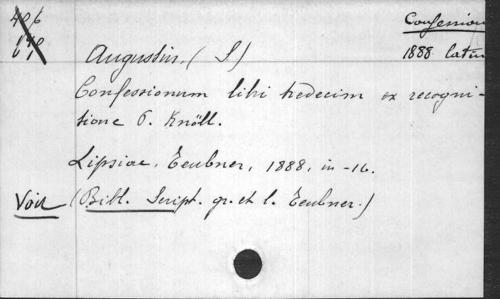 Confessions
1888 latin
Augustin. ( S)
Confessionum libri tredecim ex recogni-
tione P. Knöll.
Lipsiae, Teubner, 1888, in-16.
Voir (Bibl. Script. gr. et l. Teubner.)